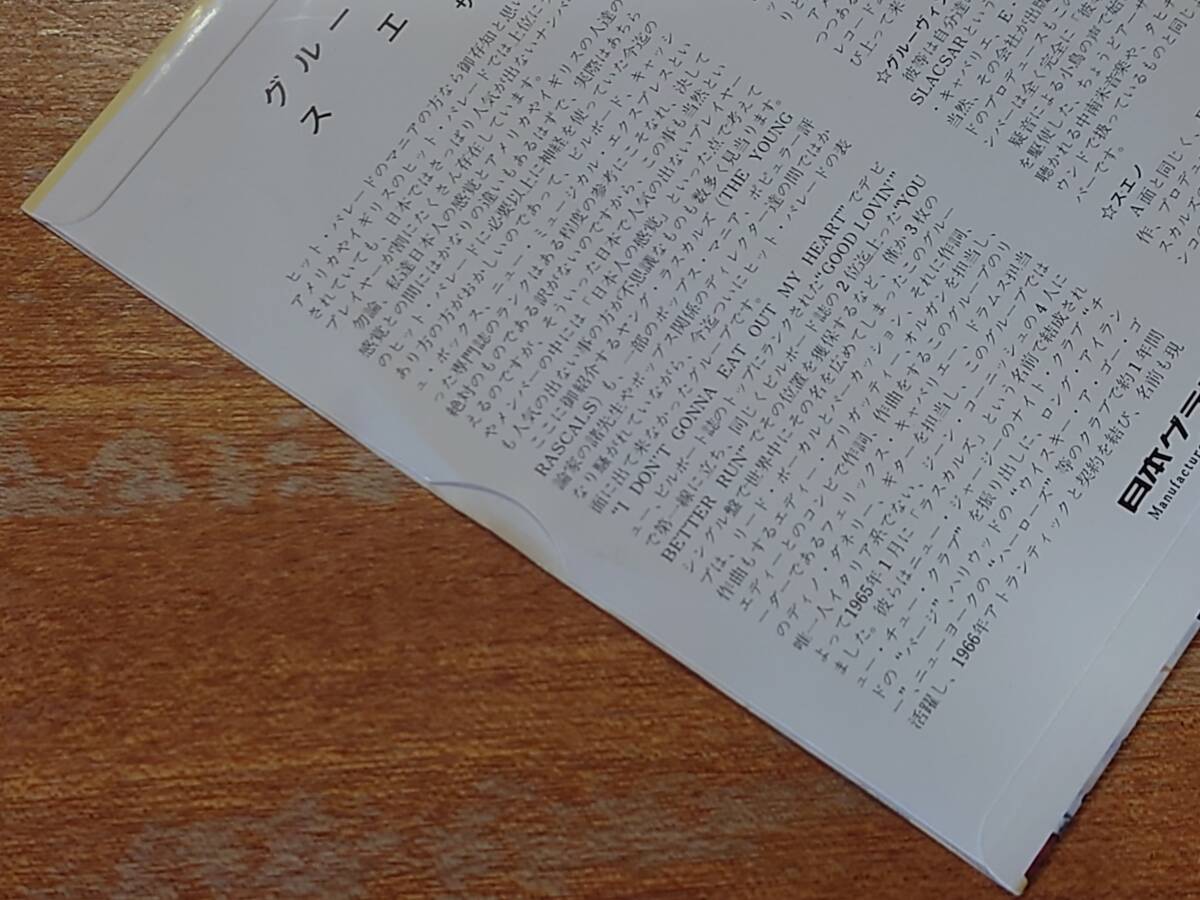 グルー
スエ
ヒット・パレードのマニアの方なら御存知と思い
アメリカやイギリスのヒット・パレードでは上位にラ
されていても、日本ではさっぱり人気が出ないナンバ
プレイヤーが割にたくさん存在しています。
勿論、私達日本人の感覚とアメリカやイギリスの人達の
感覚との間にはかなりの違いもあるはずで、実際はあちら
のヒット・パレードに必要以上に神経を使っていた今迄の
あり方の方がおかしいのであって、ビルボード、キャッシ
ュ・ボックス、ニュー・ミュージカル・エクスプレスとい
った専門誌のランクはある程度の参考にこそなれ、決して
絶対のものである訳がないのですから、この事も当然とい
えるのですが、そういった日本で人気の出ないプレイヤー
やナンバーの中には「日本人の感覚」といった点で考えて
も人気の出ない事の方が不思議なものも数多く見当ります。
ここに御紹介するヤング・ラスカルズ (THE YOUNG
RASCALS) も、一部のポップス・マニア、ポピュラー評
論家の諸先生やポップス関係のディレクター達の間ではか
なり騒がれていながら、今迄ついにヒット・パレードの表
面に出て来なかったグループです。
“I DON'T GONNA EAT OUT MY HEART”でデビ
ュー、ビルボード誌のトップにランクされた“GOOD LOVIN'”
で第一線に立ち、同じくビルボード誌の2位迄上った“YOU
BETTER RUN”でその位置を獲保するなど、僅か3枚の
シングル盤で世界中にその名を広めてしまったこのグルー
プは、リード・ボーカルとパーカーション、それに作詞、
作曲もするエディー・ブリガッティー、オルガンを担当し、
エディーとのコンビで作詞、作曲をするこのグループのリ
ーダーであるフェリックス・キャバリエー、ドラムス担当
のディノ・ダネリー、ギターを担当し、このグループでは
唯一人イタリア系でない、ジーン・コーニッシュの4人に
よって1965年1月に「ラスカルズ」という名前で結放され
ました。彼らはニュー・ジャージーのナイト・クラブ“チ
ュー・チュー・クラブ”を振り出しに、ロング・アイラン
ドの“バージ”、ハリウッドの“ウイスキー・ア・ゴー・ゴ
ー”、ニューヨークの“ハーローズ”等のクラブで約1年間
活躍し、1966年アトランティックと契約を結び、名前も現
りと
アメリカ
つつある
レコード
び上って来
☆グルーヴィン
彼等は自分達
SLACSARという
・キャバリエ、E・
当然、その会社が出版
ドのプロデュースもこ
ンバーは全く完全に「彼
疑音による小鳥の声で始
を駆使した、ちょっとアーサ
聴かれる中南米音楽や、タヒチ
ウンドで扱っているものと同じ
バーです。
☆スエノ
A面と同じく、
作、プロデ
スカルズ
ンフ
日本グラ
Manufactur